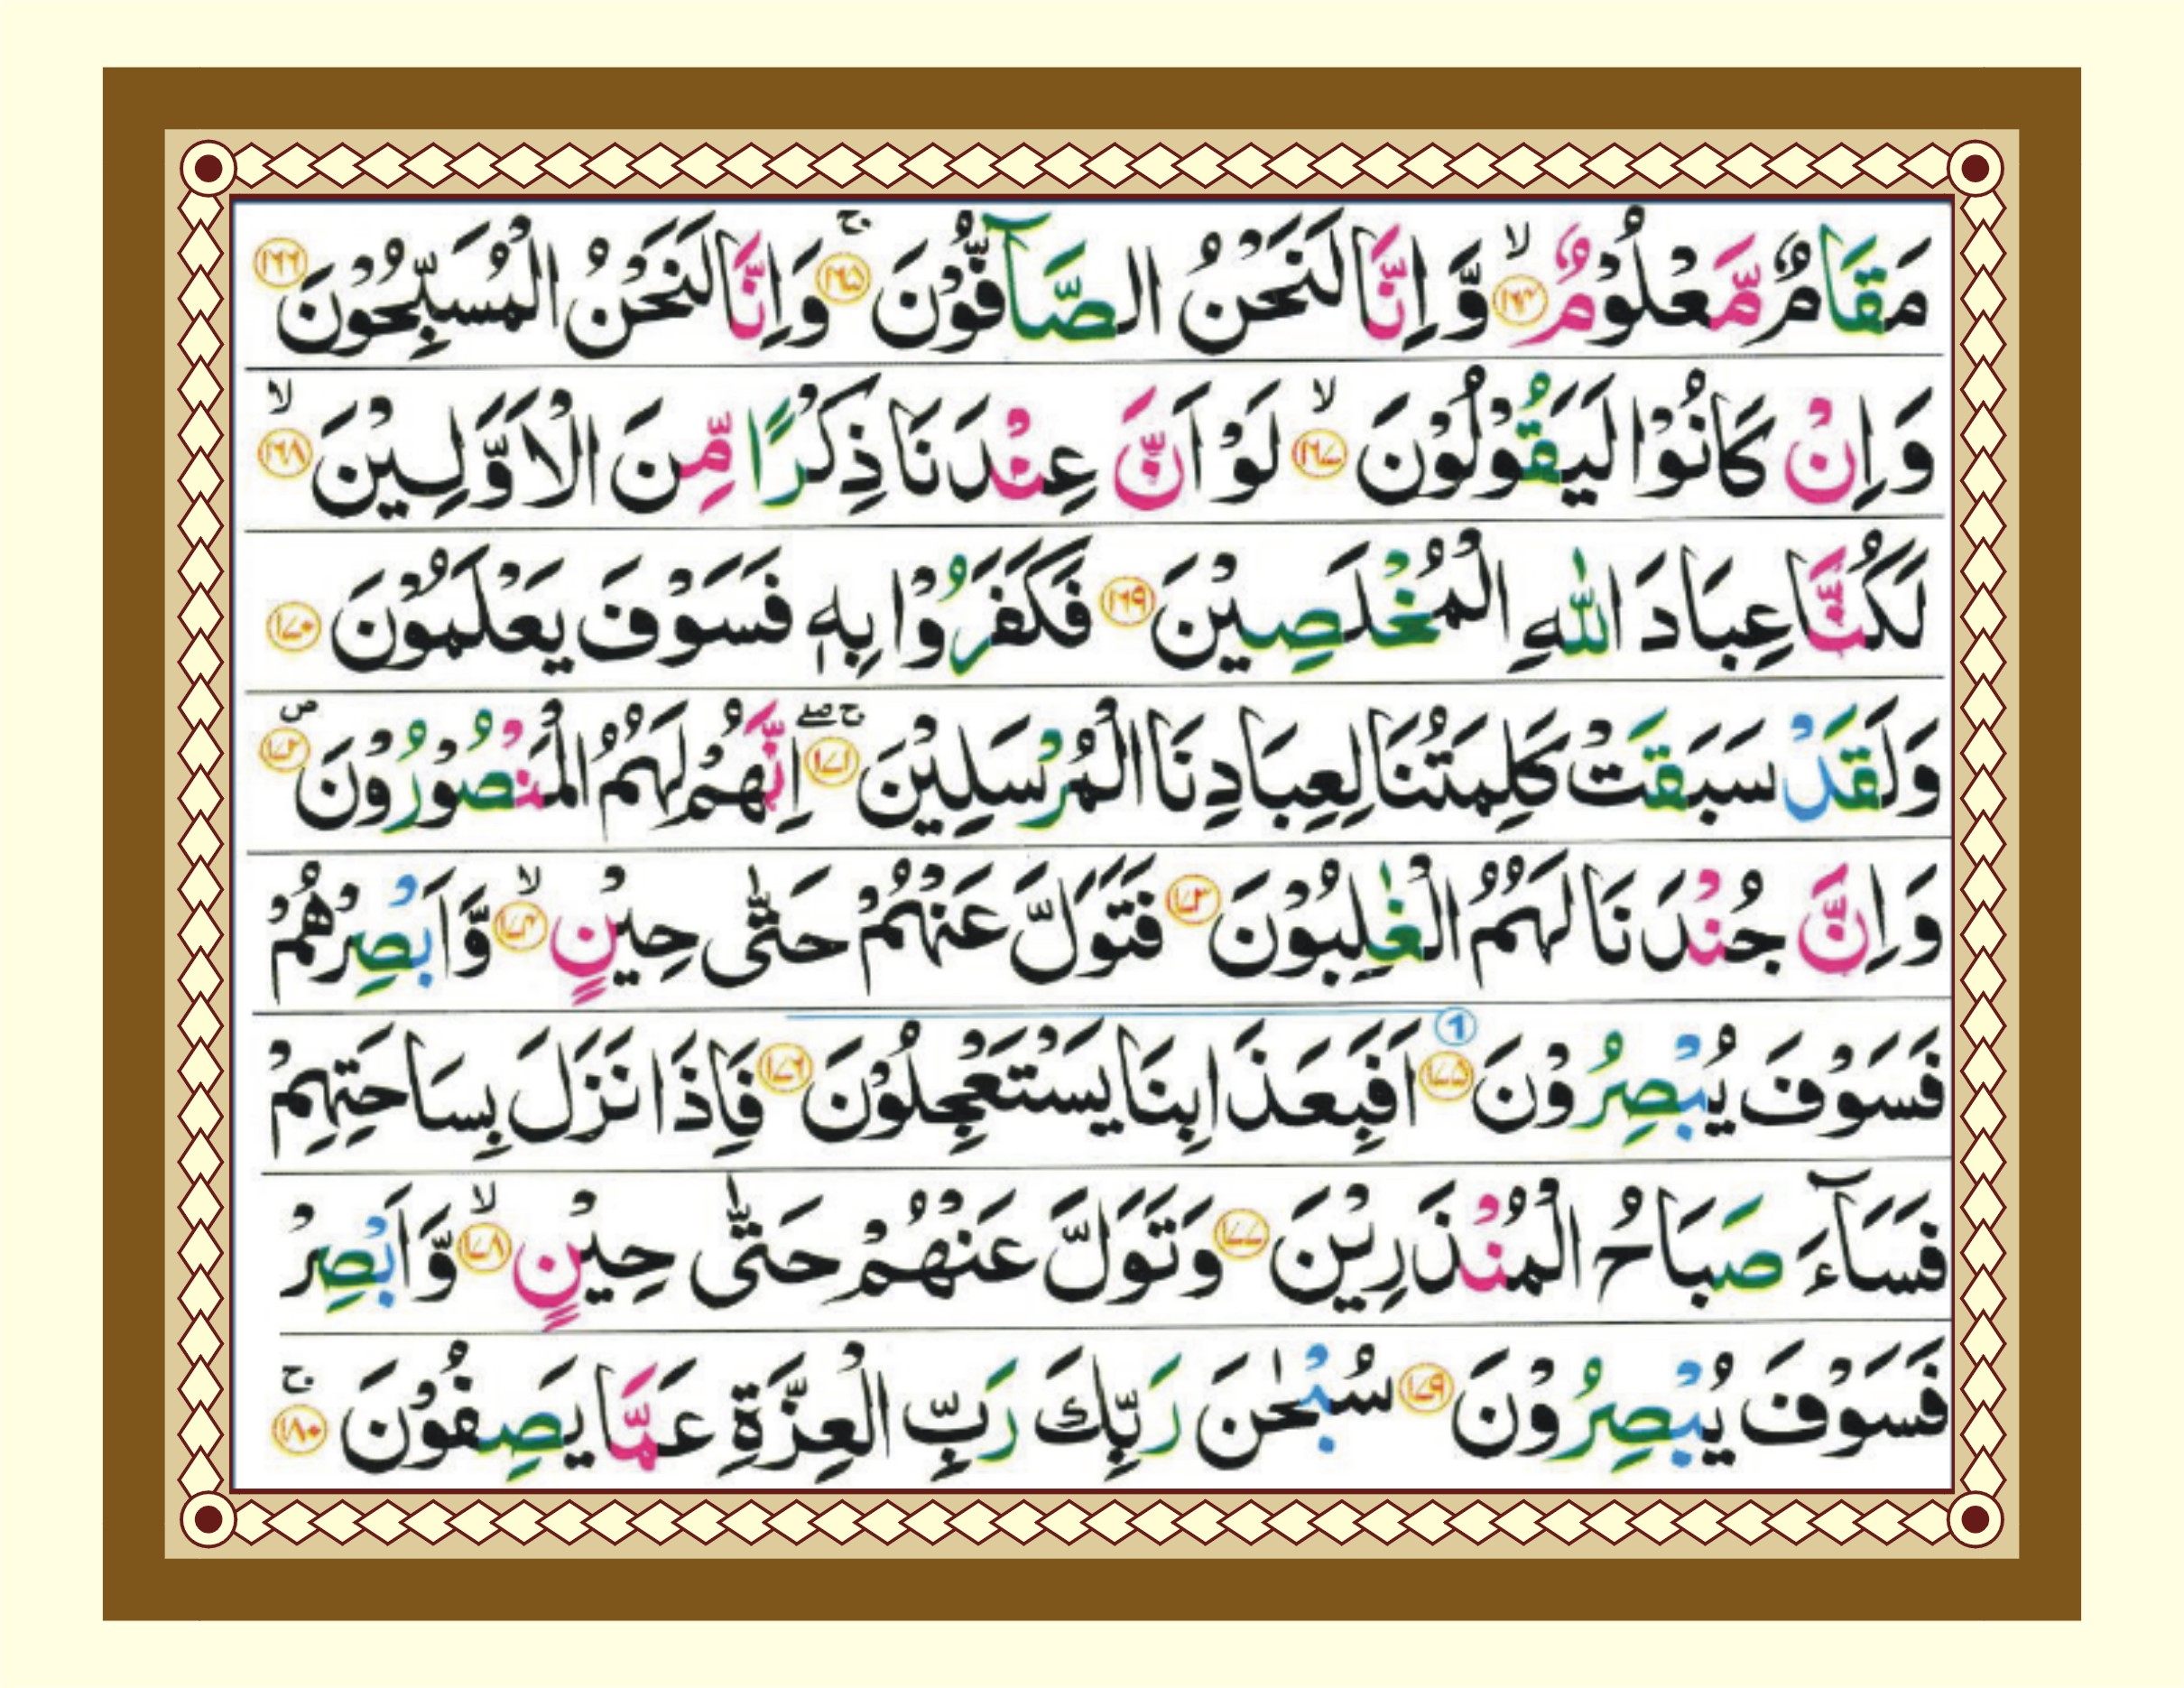 مَقَامٌ مَّعْلُوْمٌ ۙ﴿۱۶۴﴾ وَّ اِنَّا لَنَحْنُ الصَّآفُّوْنَ ۚ﴿۱۶۵﴾ وَ اِنَّا لَنَحْنُ الْمُسَبِّحُوْنَ ﴿۱۶۶﴾
وَ اِنْ كَانُوْا لَيَقُوْلُوْنَ ۙ﴿۱۶۷﴾ لَوْ اَنَّ عِنْدَنَا ذِكْرًا مِّنَ الْاَوَّلِيْنَ ۙ﴿۱۶۸﴾
لَكُنَّا عِبَادَ اللّٰهِ الْمُخْلَصِيْنَ ﴿۱۶۹﴾ فَكَفَرُوْا بِهٖ فَسَوْفَ يَعْلَمُوْنَ ﴿۱۷۰﴾
وَ لَقَدْ سَبَقَتْ كَلِمَتُنَا لِعِبَادِنَا الْمُرْسَلِيْنَ ۚۖ﴿۱۷۱﴾ اِنَّهُمْ لَهُمُ الْمَنْصُوْرُوْنَ ۪﴿۱۷۲﴾
وَ اِنَّ جُنْدَنَا لَهُمُ الْغٰلِبُوْنَ ﴿۱۷۳﴾ فَتَوَلَّ عَنْهُمْ حَتّٰى حِيْنٍ ۙ﴿۱۷۴﴾ وَّ اَبْصِرْهُمْ
فَسَوْفَ يُبْصِرُوْنَ ﴿۱۷۵﴾ 1 اَفَبِعَذَابِنَا يَسْتَعْجِلُوْنَ ﴿۱۷۶﴾ فَاِذَا نَزَلَ بِسَاحَتِهِمْ
فَسَآءَ صَبَاحُ الْمُنْذَرِيْنَ ﴿۱۷۷﴾ وَ تَوَلَّ عَنْهُمْ حَتّٰى حِيْنٍ ۙ﴿۱۷۸﴾ وَّ اَبْصِرْ
فَسَوْفَ يُبْصِرُوْنَ ﴿۱۷۹﴾ سُبْحٰنَ رَبِّكَ رَبِّ الْعِزَّةِ عَمَّا يَصِفُوْنَ ۚ﴿۱۸۰﴾